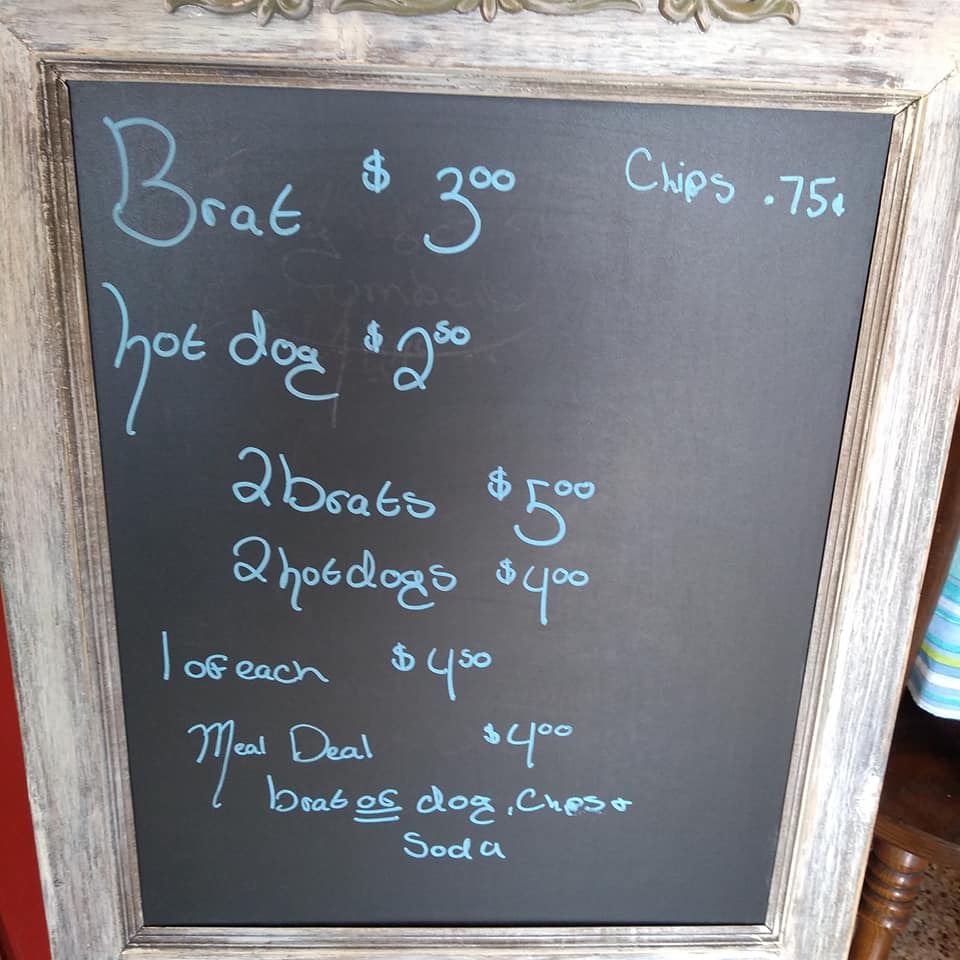 Brat $ 3.00
Chips .75¢
hot dog $ 2.50
2 brats $ 5.00
2 hotdogs $ 4.00
1 of each $ 4.50
Meal Deal $ 4.00
brat or dog, Chips +
Soda